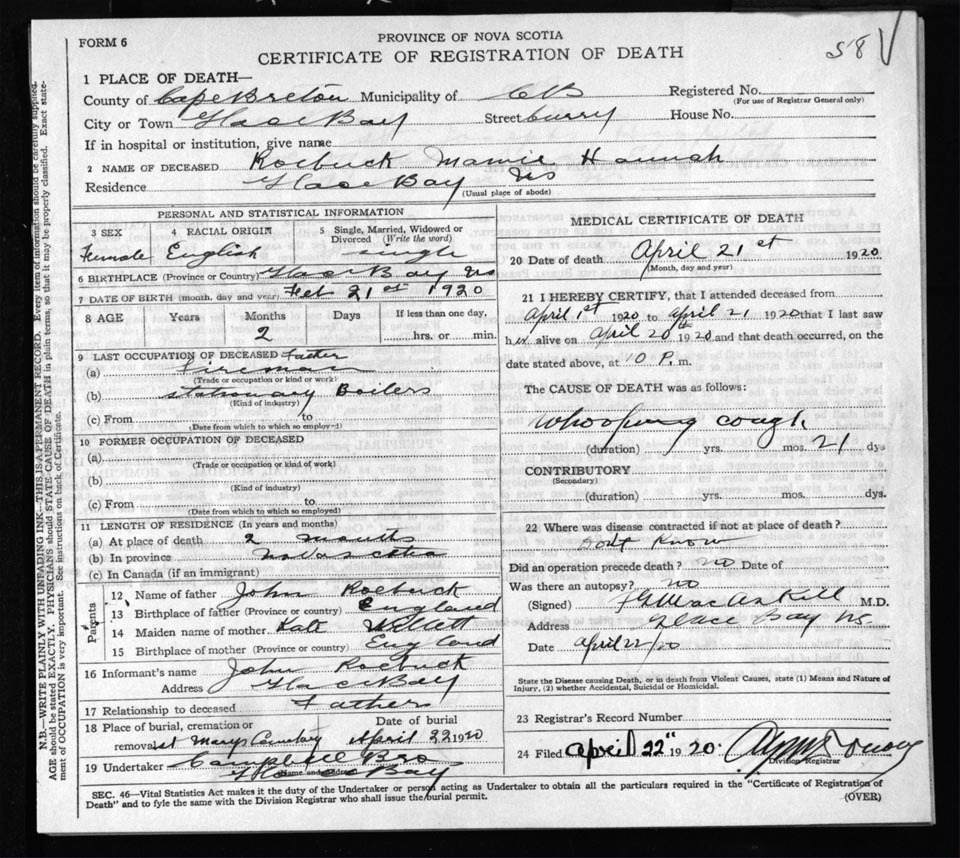 FORM 6
PROVINCE OF NOVA SCOTIA
CERTIFICATE OF REGISTRATION OF DEATH
58
1 PLACE OF DEATH—
County of Cape Breton Municipality of CB Registered No.
(For use of Registrar General only)
City or Town Glace Bay Street Curry House No.
If in hospital or institution, give name
2 NAME OF DECEASED Roebuck Mamie Hannah
Residence Glace Bay NS
(Usual place of abode)
PERSONAL AND STATISTICAL INFORMATION
3 SEX 4 RACIAL ORIGIN 5 Single, Married, Widowed or Divorced (Write the word)
Female English single
6 BIRTHPLACE (Province or Country) Glace Bay NS
7 DATE OF BIRTH (month, day and year) Feb 21st 1920
8 AGE Years Months Days If less than one day,
2 hrs. or min.
9 LAST OCCUPATION OF DECEASED Father
(a) Fireman
(Trade or occupation or kind or work)
(b) Stationary Boilers
(Kind of industry)
(c) From to
(Date from which to which so employ-d)
10 FORMER OCCUPATION OF DECEASED
(a)
(Trade or occupation or kind of work)
(b)
(Kind of industry)
(c) From to
(Date from which to which so employed)
11 LENGTH OF RESIDENCE (In years and months)
(a) At place of death 2 months
(b) In province Nova Scotia
(c) In Canada (if an immigrant)
Parents
12 Name of father John Roebuck
13 Birthplace of father (Province or country) England
14 Maiden name of mother Kate
15 Birthplace of mother (Province or country) England
16 Informant's name John Roebuck
Address Glace Bay
17 Relationship to deceased Father
18 Place of burial, cremation or removal Date of burial
St Marys Cemetery April 22 1920
19 Undertaker Campbell Bro
(Name and address)
Glace Bay
MEDICAL CERTIFICATE OF DEATH
20 Date of death April 21st 1920
(Month, day and year)
21 I HEREBY CERTIFY, that I attended deceased from
April 1st 1920 to April 21 1920 that I last saw
her alive on April 20th 1920 and that death occurred, on the
date stated above, at 10 P. m.
The CAUSE OF DEATH was as follows:
Whooping cough.
(duration) yrs. mos. 21 dys
CONTRIBUTORY
(Secondary)
(duration) yrs. mos. dys.
22 Where was disease contracted if not at place of death?
Dont Know
Did an operation precede death? no Date of
Was there an autopsy? no
(Signed) MacAskill M.D.
Address Glace Bay NS
Date April 22/20
State the Disease causing Death, or in death from Violent Causes, state (1) Means and Nature of
Injury, (2) whether Accidental, Suicidal or Homicidal.
23 Registrar's Record Number
24 Filed April 22" 1920.
Division Registrar
SEC. 46—Vital Statistics Act makes it the duty of the Undertaker or person acting as Undertaker to obtain all the particulars required in the "Certificate of Registration of
Death" and to fyle the same with the Division Registrar who shall issue the burial permit. (OVER)
N.B.—WRITE PLAINLY WITH UNFADING INK—THIS IS A PERMANENT RECORD. Every item of information should be carefully supplied.
AGE should be stated EXACTLY. PHYSICIANS should STATE CAUSE OF DEATH in plain terms, so that it may be properly classified. Exact state-
ment of OCCUPATION is very important. See instructions on back of Certificate.